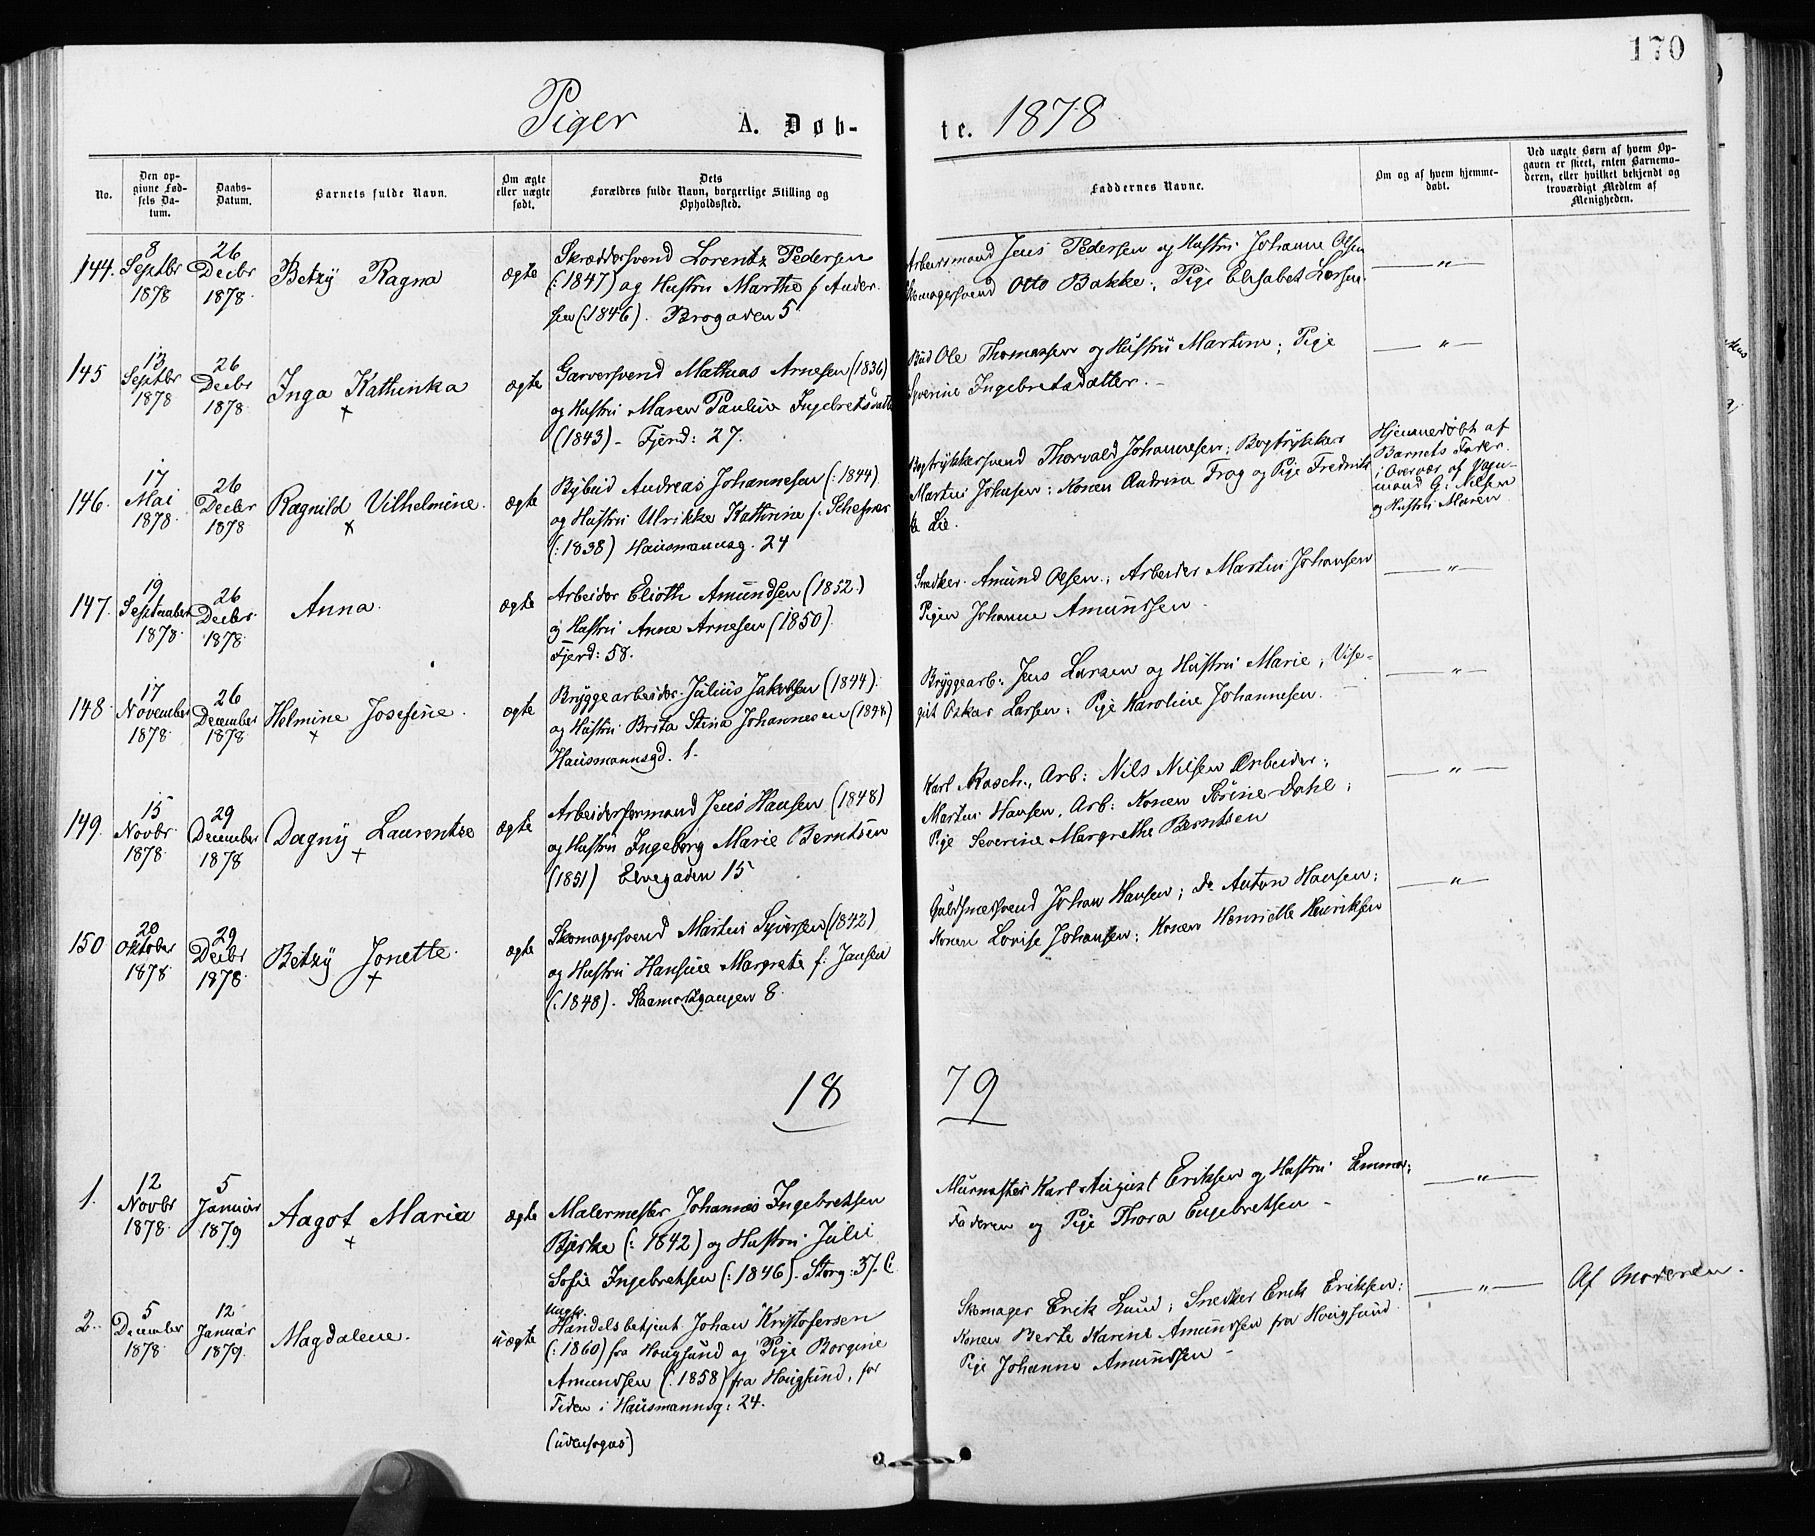 170
Piger A. Døb-
te. 1878
No.
Den op-
givne Fød-
sels Da-
tum.
Daabs-
Datum.
Barnets fulde Navn.
Om ægte
eller uægte
født.
Dets
Forældres fulde Navn, borgerlige Stilling og
Opholdssted.
Faddernes Navne.
Om og af hvem hjemme-
døbt.
Ved uægte Børn af hvem Op-
gaven er skeet, enten Barnemo-
deren, eller hvilket bekjendt og
troværdigt Medlem af
Menigheden.
144.
8
Septbr
1878
26
Decbr
1878.
Betzy Ragna
ægte
Skræddersvend Lorentz Pedersen
(:1847) og Hustru Marthe f. Ander-
sen (:1846). Brogaden 5
Arbeidsmand Jens Pedersen og Hustru Johanne Olsen
Skomagersvend Otto Bakke; Pige Elisabet Larsen
— " —
145
13
Septbr
1878
26
Decbr
1878.
Inga Kathinka
+
ægte
Garversvend Mathias Arnesen (1836)
og Hustru Maren Pauline Ingebretsdatter
(1843) - Fjerd: 27.
Bud Ole Thomassen og Hustru Martine; Pige
Syverine Ingebretsdatter. -
— " —
146.
17
Mai
1878.
26
Decbr
1878
Ragnild Vilhelmine.
x
ægte
Bybud Andreas Johannesen (:1844)
og Hustru Ulrikke Kathrine f.
(:1838) Hausmannsg. 24
Bogtrykkersvend Thorvald Johannesen; Bogtrykker
Martin Johnsen; Konen Andrina Frog og Pige Fredrik-
ke Lie.
Hjemmedøbt af
Barnets Fader
i Overvær af Vogn-
mand G. Nilsen
og Hustru Maren
147.
19
September
1878.
26
Decbr.
1878
Anna.
ægte
Arbeider Elioth Amundsen (1852.)
og Hustru Anne Arnesen (1850).
Fjerd: 58.
Snedker. Amund Olsen; Arbeider Martin Johansen
Pigen Johanne Amundsen.
— " —
148.
17
November
1878.
26
December
1878.
Helmine Josefine.
+
ægte
Bryggearbeider. Julius Jakobsen (1844).
og Hustru Brita Stina Johannesen (1848)
Hausmannsgd. 1.
Bryggearb: Jens Larsen og Hustru Marie; Vise-
gut Oskar Larsen; Pige Karoline Johannesen.
— " —
149.
15
Novbr.
1878.
29
December
1878
Dagny Laurentze
+
ægte
Arbeidsformand Jens Hansen (1848)
og Hustru Ingeborg Marie Berntsen
(1851) Elvegaden 15
Karl Rosch., Arb: Nils Nilsen Arbeider;
Martin Hansen, Arb: Konen Sørine Dahl;
Pige Severine Margrethe Berntsen
— " —
150
20
Oktober
1878.
29
Decbr
1878.
Betzy Jonette.
+
ægte
Skomagersvend Martin Syversen (1842)
og Hustru Hansine Margrete f: Jansen
(:1848). 8.
Guldsmedsvend Johan Hansen; do Anton Hansen;
Konen Lovise Johansen; Konen Henriette Henriksen
— " —
18 79
1.
12
Novbr
1878.
5
Januar
1879
Aagot Maria
+
ægte
Malermester Johannes Ingebretsen
Bjerke (:1842) og Hustru Julie
Sofie Ingebretsen (:1846). Storg: 37. C.
Murmester Karl August Eriksen og Hustru Emma;
Faderen og Pige Thora Engebretsen -
— " —
2.
5
December
1878.
12
Januar
1879.
Magdalene.
uægte
ungk.
Handelsbetjent Johan Kristofersen
(:1860) fra Hougsund og Pige Borgine
Amundsen (:1858) fra Hougsund, for
Tiden i Hausmannsg: 24.
(udensogns)
Skomager Erik Lund; Snedker Erik Eriksen;
Konen Berte Karine Amundsen fra Hougsund
Pige Johanne Amundsen -
— " —
Af Moderen.